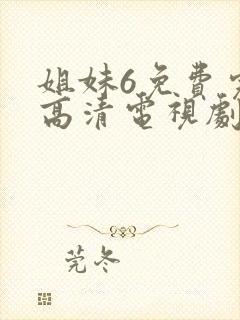 姐妹6免費
高清電視劇
莞冬